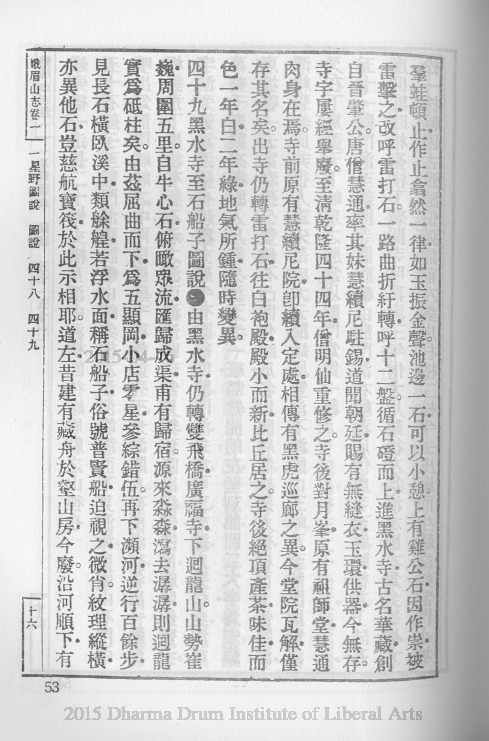 羣蛙頓止作止翕然一律如玉振金聲池邊一石可以小憩上有雞公石因作祟被
雷擊之改呼雷打石一路曲折紆轉呼十二盤循石磴而上進黑水寺古名華藏創
自晉肇公唐僧慧通率其妹慧續尼駐錫道聞朝廷賜有無縫衣玉環供器今無存
寺宇屢經舉廢至清乾隆四十四年僧明仙重修之寺後對月峯原有祖師堂慧通
肉身在焉寺前原有慧續尼院卽續入定處相傳有黑虎巡廊之異今堂院瓦解僅
存其名矣出寺仍轉雷打石往白袍殿殿小而新比丘居之寺後絕頂產茶味佳而
色一年白二年綠地氣所鍾隨時變異
四十九黑水寺至石船子圖說●由黑水寺仍轉雙飛橋廣福寺下迴龍山山勢崔
巍周圍五里自牛心石俯瞰眾流匯歸成渠甫有歸宿源來淼淼瀉去潺潺則迴龍
實爲砥柱矣由茲屈曲而下爲五顯岡小店零星參綜錯伍再下瀕河逆行百餘步
見長石橫臥溪中類艅艎若浮水面稱石船子俗號普賢船迫視之微肖紋理縱橫
亦異他石豈慈航寶筏於此示相耶道左昔建有藏舟於壑山房今廢沿河順下有
峨眉山志卷一 一 星野圖說 圖說 四十八 四十九
十六
53
2015 Dharma Drum Institute of Liberal Arts